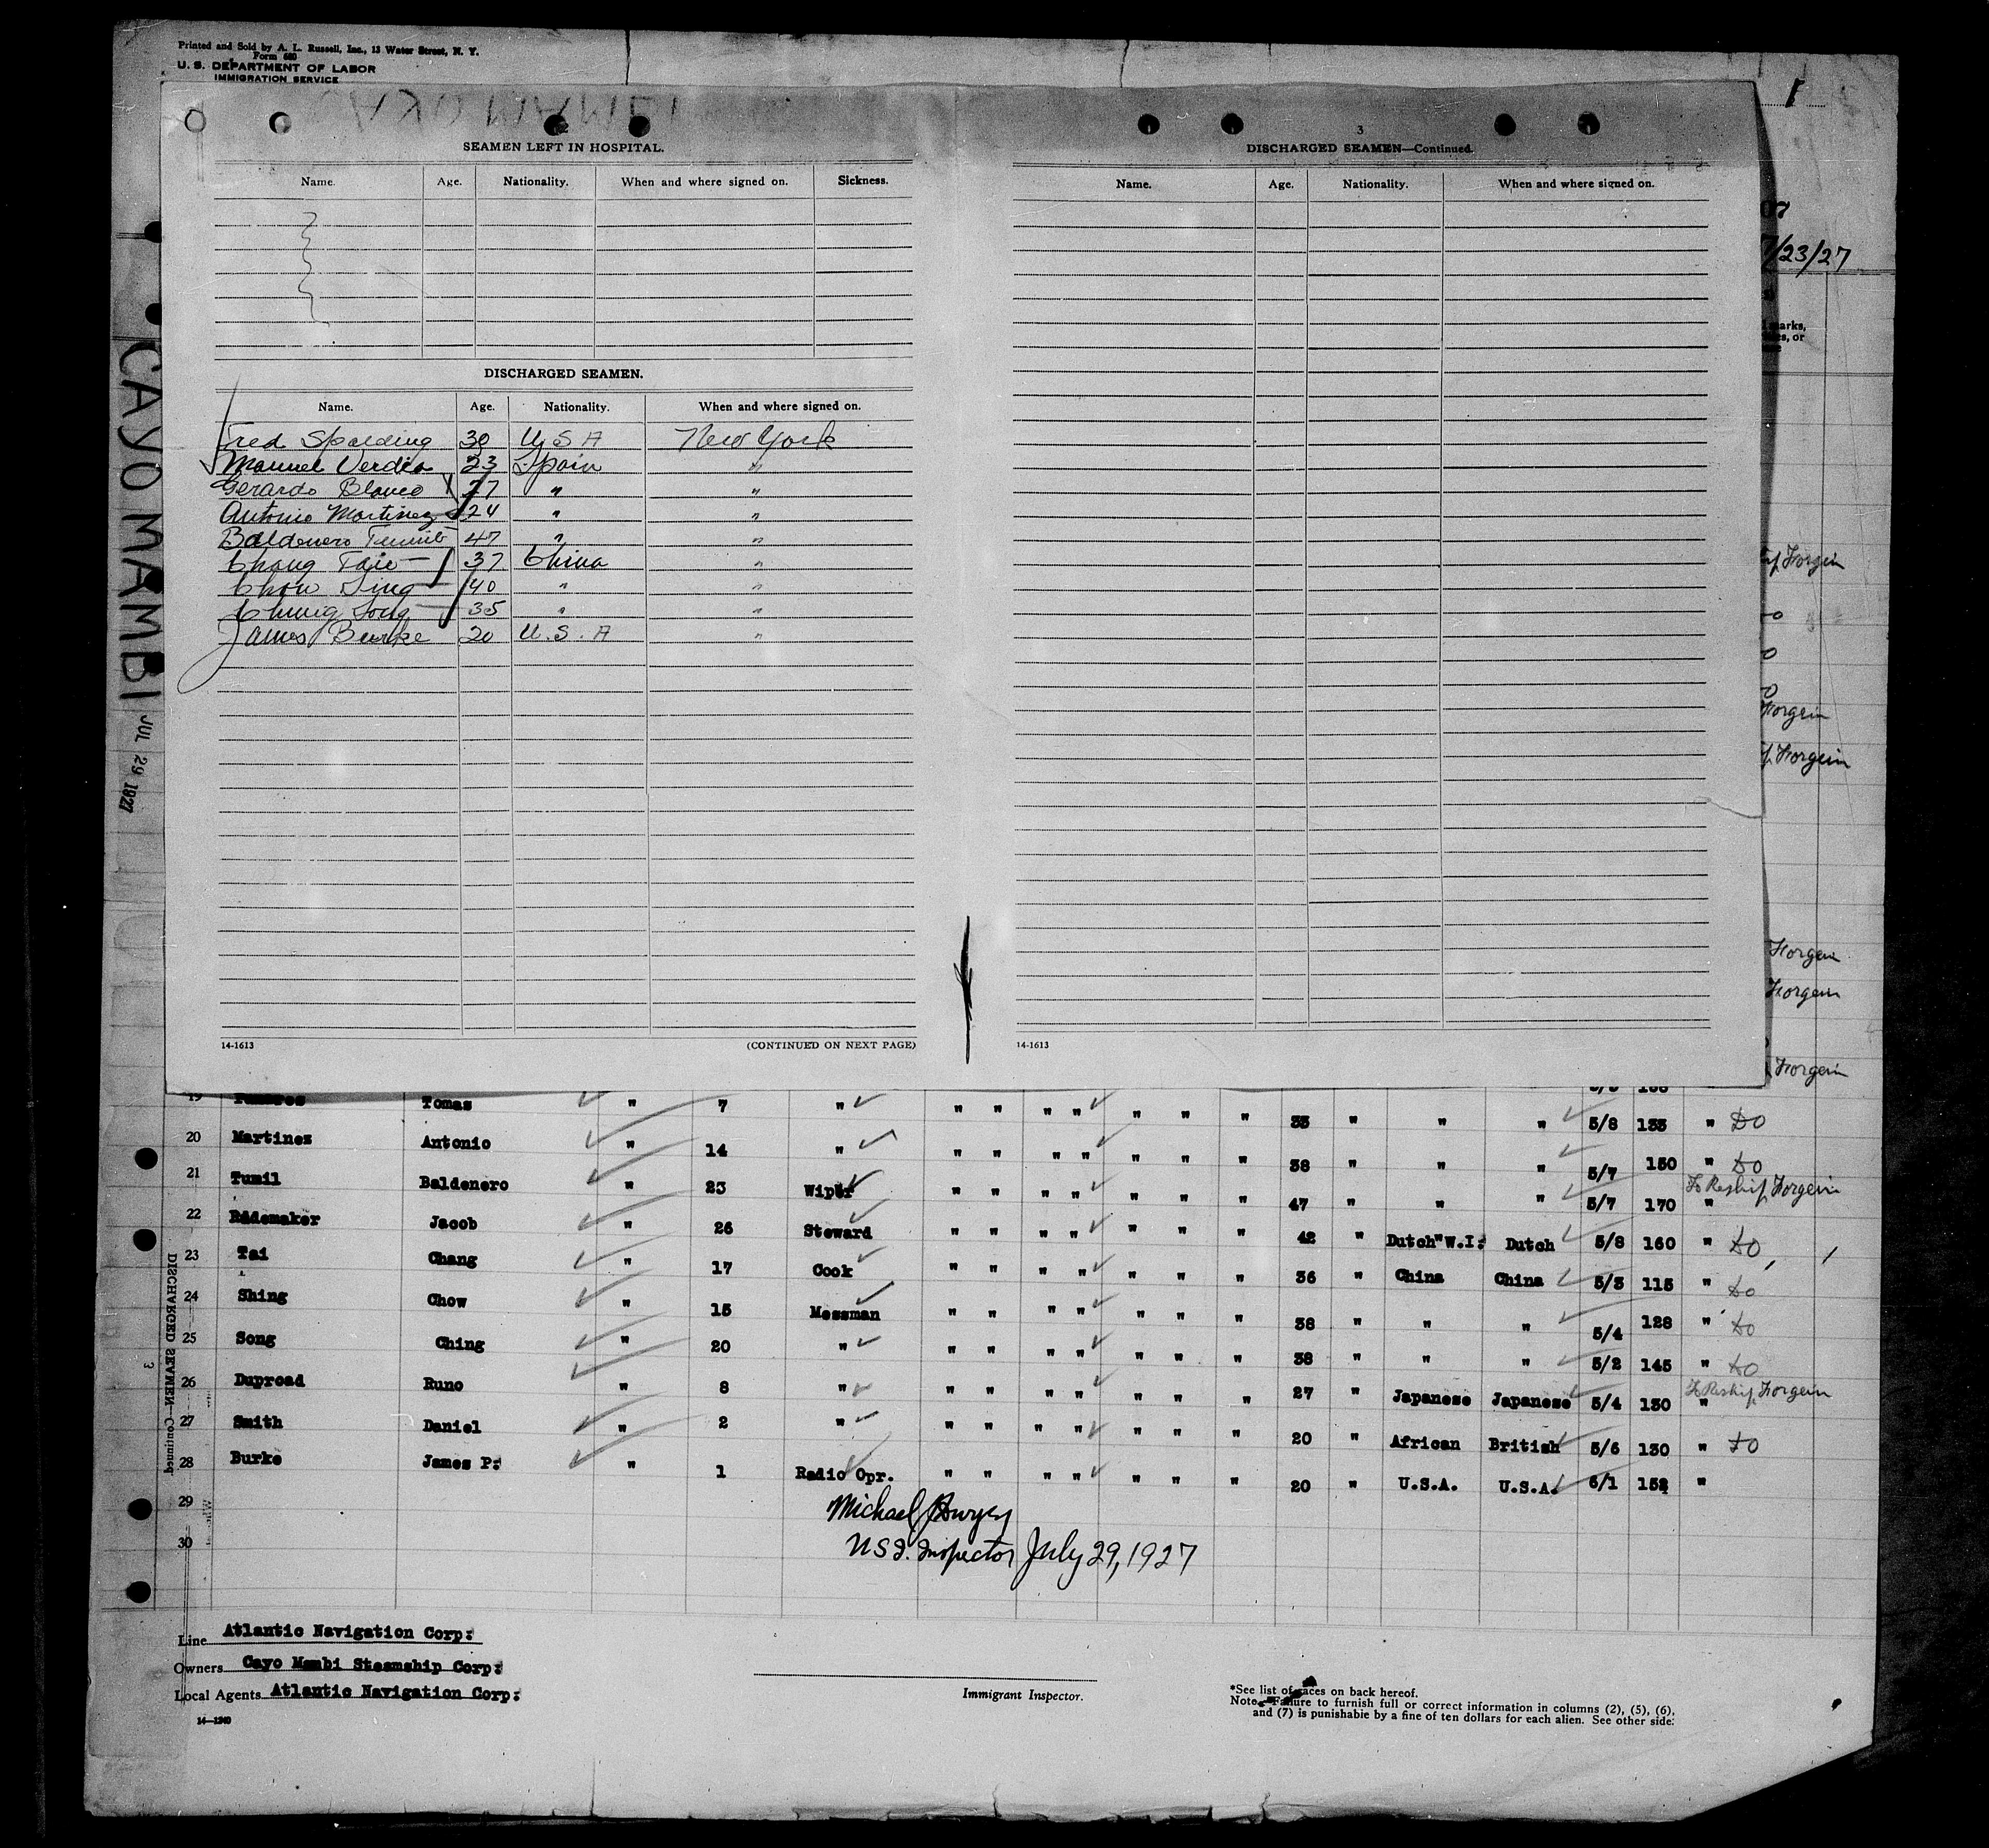 Printed and Sold by A. L. Russell, Inc., 13 Water Street, N. Y.
Form 680
U. S. DEPARTMENT OF LABOR
IMMIGRATION SERVICE
2
SEAMEN LEFT IN HOSPITAL.
Name. Age. Nationality. When and where signed on. Sickness.
DISCHARGED SEAMEN.
Name. Age. Nationality. When and where signed on.
Fred Spalding 30 U S A New York
Manuel Verdia 23 Spain "
Gerardo Blanco 27 " "
Antonio Martinez 24 " "
Baldenero 47 " "
Chang Taie 37 China "
Chow Sing 40 " "
Chung Song 35 " "
James Burke 20 U. S. A "
14-1613 (CONTINUED ON NEXT PAGE)
3
DISCHARGED SEAMEN—Continued.
Name. Age. Nationality. When and where signed on.
14-1613
7/23/27
marks,
or
Forgein
Forgein
Forgein
Forgein
Forgein
Forgein
CAYO MAMBI
JUL 29 1927
DISCHARGED SEAMEN—Continued
3
19 Tomas " 7 " " " " " " " " 33 " " " 5/8 133 " do
20 Martinez Antonio " 14 " " " " " " " " 38 " " " 5/7 150 " do
21 Tumil Baldenero " 23 Wiper " " " " " " " 47 " " " 5/7 170 " To Reship Forgein
22 Rademaker Jacob " 26 Steward " " " " " " " 42 " Dutch "W.I. Dutch 5/8 160 " do
23 Tai Chang " 17 Cook " " " " " " " 36 " China China 5/3 115 " do
24 Shing Chow " 15 Messman " " " " " " " 38 " " " 5/4 128 " do
25 Song Ching " 20 " " " " " " " " 38 " " " 5/2 145 " do
26 Duproad Runo " 8 " " " " " " " " 27 " Japanese Japanese 5/4 130 " To Reship Forgein
27 Smith Daniel " 2 " " " " " " " " 20 " African British 5/6 130 " do
28 Burke James P. " 1 Radio Opr. " " " " " " " 20 " U.S.A. U.S.A. 6/1 152 "
29
30
Michael
U S I. Inspector July 29, 1927
Line Atlantic Navigation Corp:
Owners Cayo Mambi Steamship Corp:
Local Agents Atlantic Navigation Corp:
14—1240
Immigrant Inspector.
*See list of races on back hereof.
Note.—Failure to furnish full or correct information in columns (2), (5), (6),
and (7) is punishable by a fine of ten dollars for each alien. See other side.